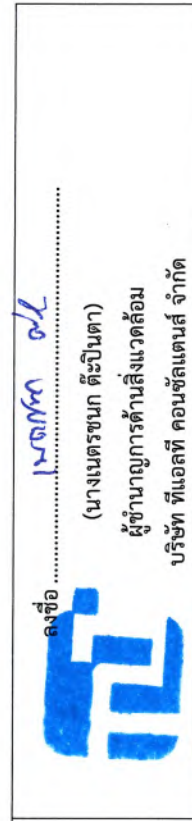 ลงชื่อ ........................................................
(นางเนตรชนก ต๊ะปินตา)
ผู้ชำนาญการด้านสิ่งแวดล้อม
บริษัท ทีแอลที คอนซัลแตนส์ จำกัด